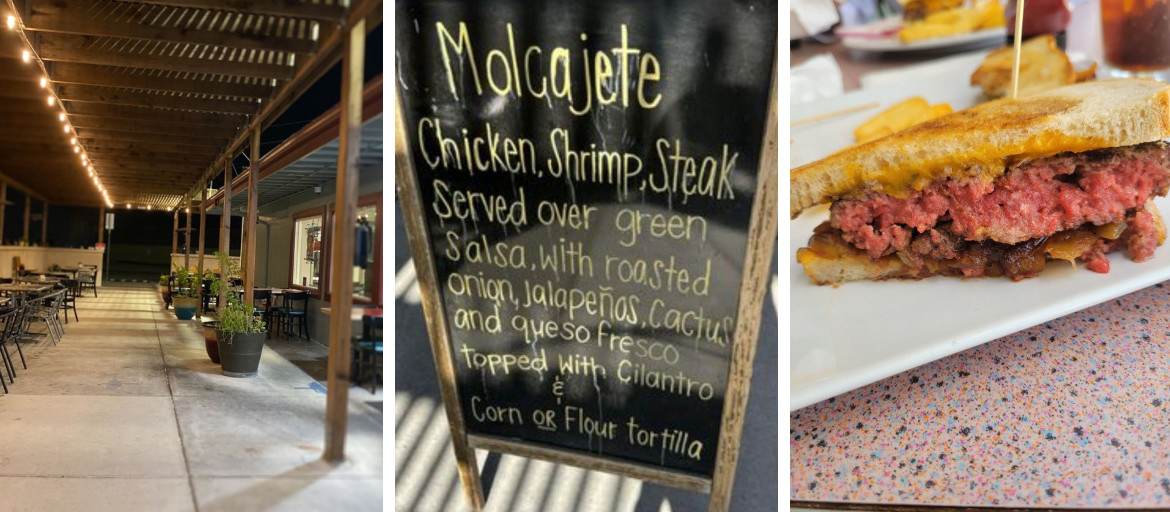 Molcajete
Chicken, Shrimp, Steak
Served over green
Salsa, with roasted
onion, jalapeños, Cactus
and queso fresco
topped with Cilantro
&
Corn OR Flour tortilla